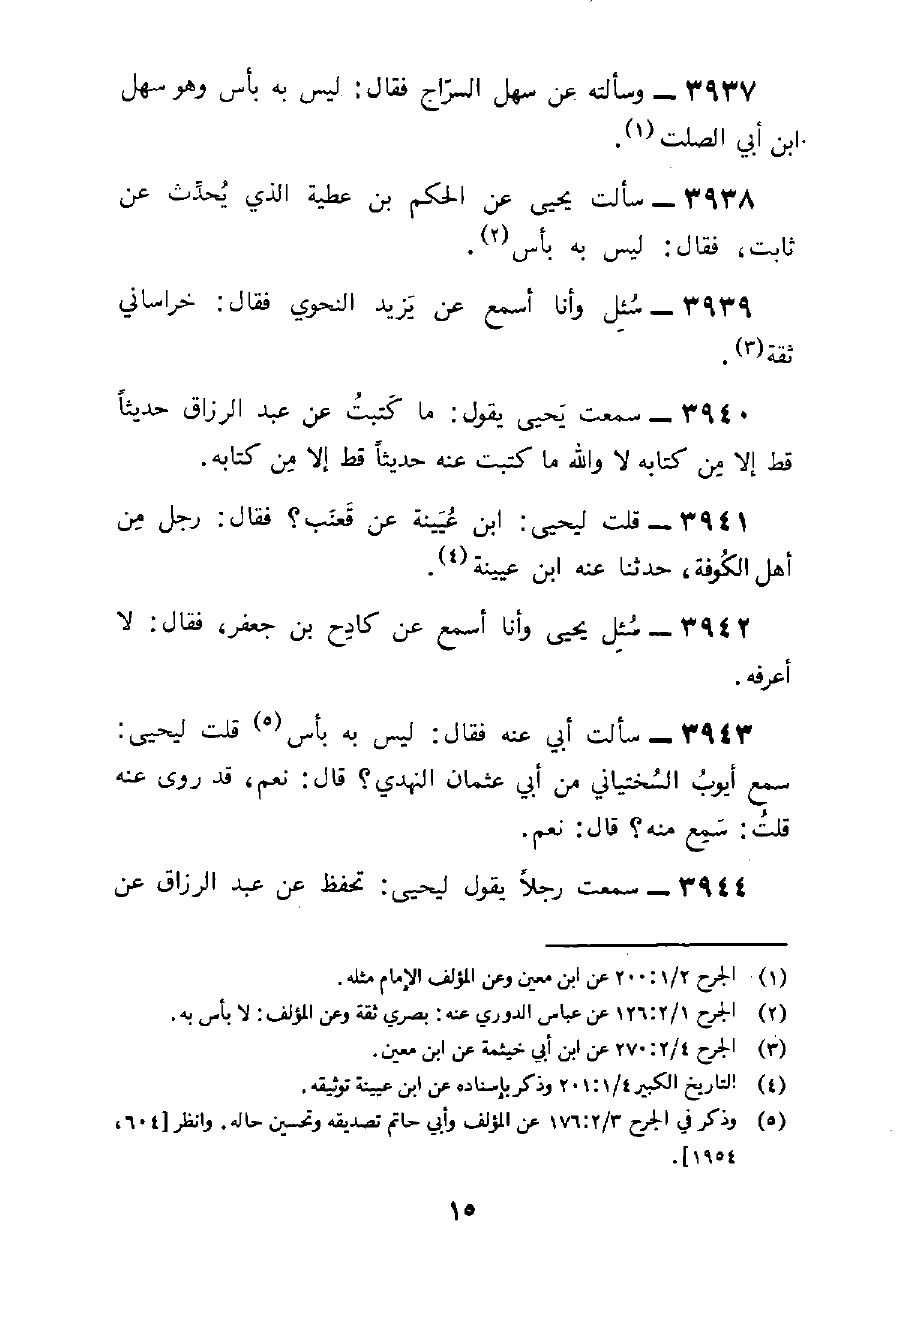 ٣٩٣٧ ــ وسألته عن سهل السرّاج فقال: ليس به بأس وهو سهل
ابن أبي الصلت (١).
٣٩٣٨ ــ سألت يحيى عن الحكم بن عطية الذي يُحدِّث عن
ثابت، فقال: ليس به بأس (٢).
٣٩٣٩ ــ سُئِل وأنا أسمع عن يَزيد النحوي فقال: خراساني
ثقة (٣).
٣٩٤٠ ــ سمعت يَحيى يقول: ما كَتبتُ عن عبد الرزاق حديثاً
قط إلا مِن كتابه لا والله ما كتبت عنه حديثاً قط إلا مِن كتابه.
٣٩٤١ ــ قلت ليحيى: ابن عُيَينة عن قَعنَب؟ فقال: رجل مِن
أهل الكُوفة، حدثنا عنه ابن عيينة (٤).
٣٩٤٢ ــ سُئِل يحيى وأنا أسمع عن كادِح بن جعفر، فقال: لا
أعرفه.
٣٩٤٣ ــ سألت أبي عنه فقال: ليس به بأس (٥) قلت ليحيى:
سمع أيوبُ السُختياني من أبي عثمان النهدي؟ قال: نعم، قد روى عنه
قلتُ: سَمِع منه؟ قال: نعم.
٣٩٤٤ ــ سمعت رجلاً يقول ليحيى: تحفظ عن عبد الرزاق عن
(١) الجرح ٢/١:٢٠٠ عن ابن معين وعن المؤلف الإمام مثله.
(٢) الجرح ١/٢:١٢٦ عن عباس الدوري عنه: بصري ثقة وعن المؤلف: لا بأس به.
(٣) الجرح ٤/٢:٢٧٠ عن ابن أبي خيثمة عن ابن معين.
(٤) التاريخ الكبير ٤/١:٢٠١ وذكر بإسناده عن ابن عيينة توثيقه.
(٥) وذكر في الجرح ٣/٢:١٧٦ عن المؤلف وأبي حاتم تصديقه وتحسين حاله. وانظر [٦٠٤،
١٩٥٤].
١٥